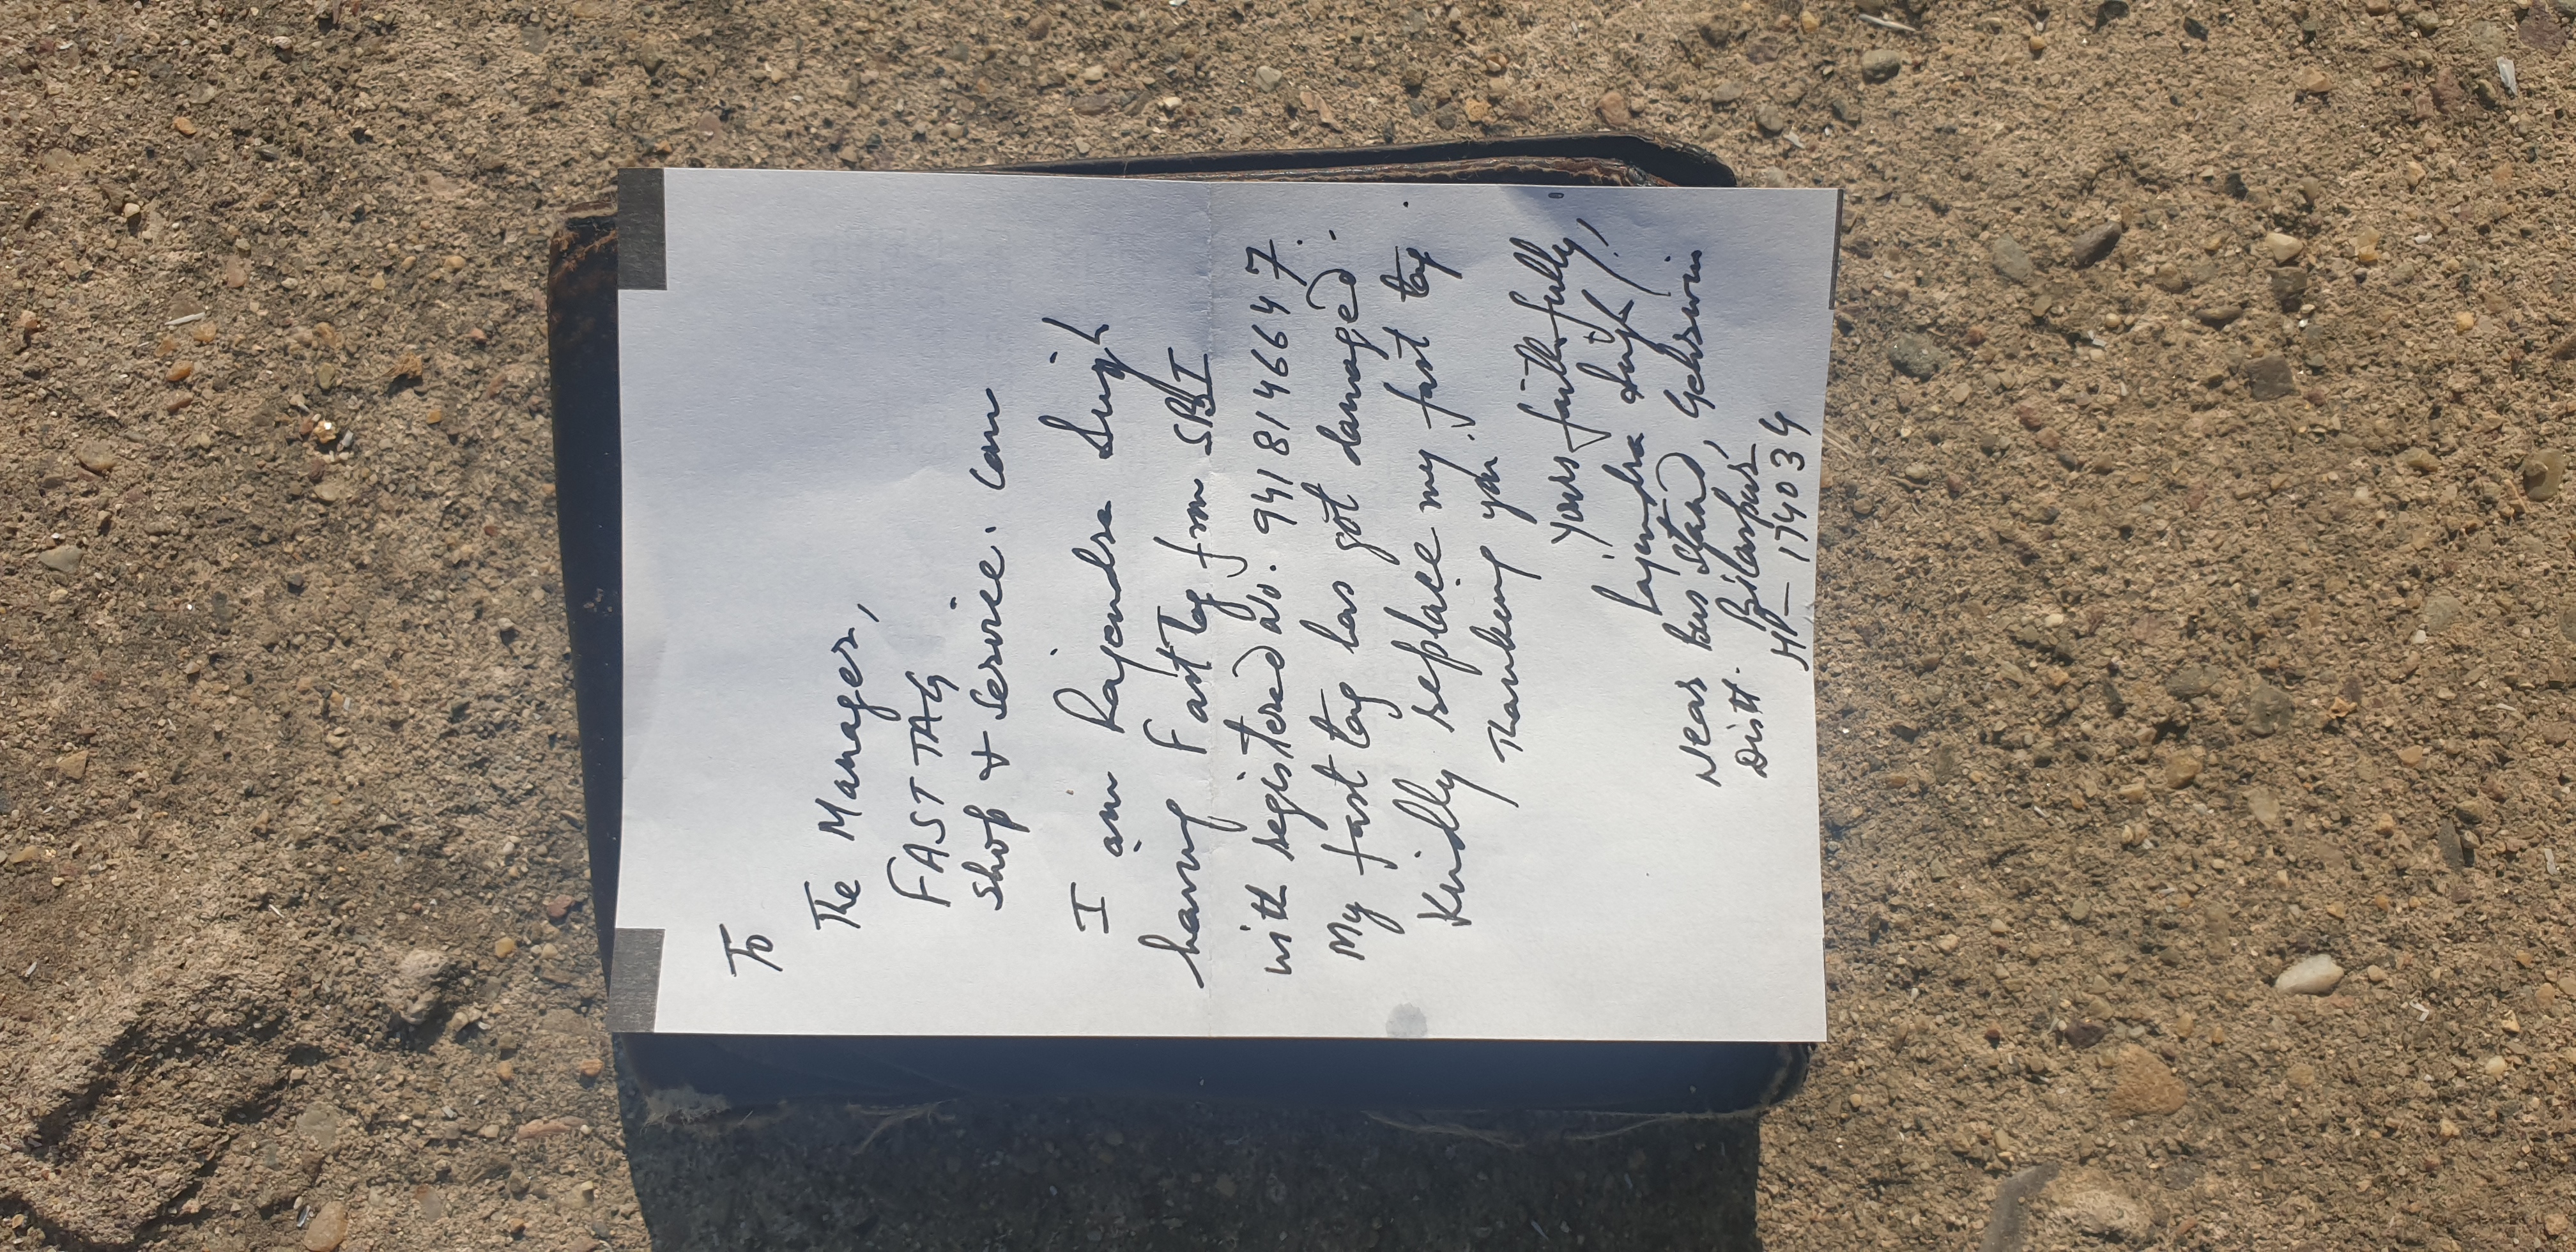 To
The Manager,
FASTTAG
Shop & Service. Com
I am Rajendra Singh
having Fast tag from SBI
with registered no. 9418146647.
My fast tag has got damaged.
Kindly replace my fast tag.
Thanking you.
Yours faithfully,
Rajendra Singh
Near Bus Stand, Gehrwin
Distt. Bilaspur
HP - 174034